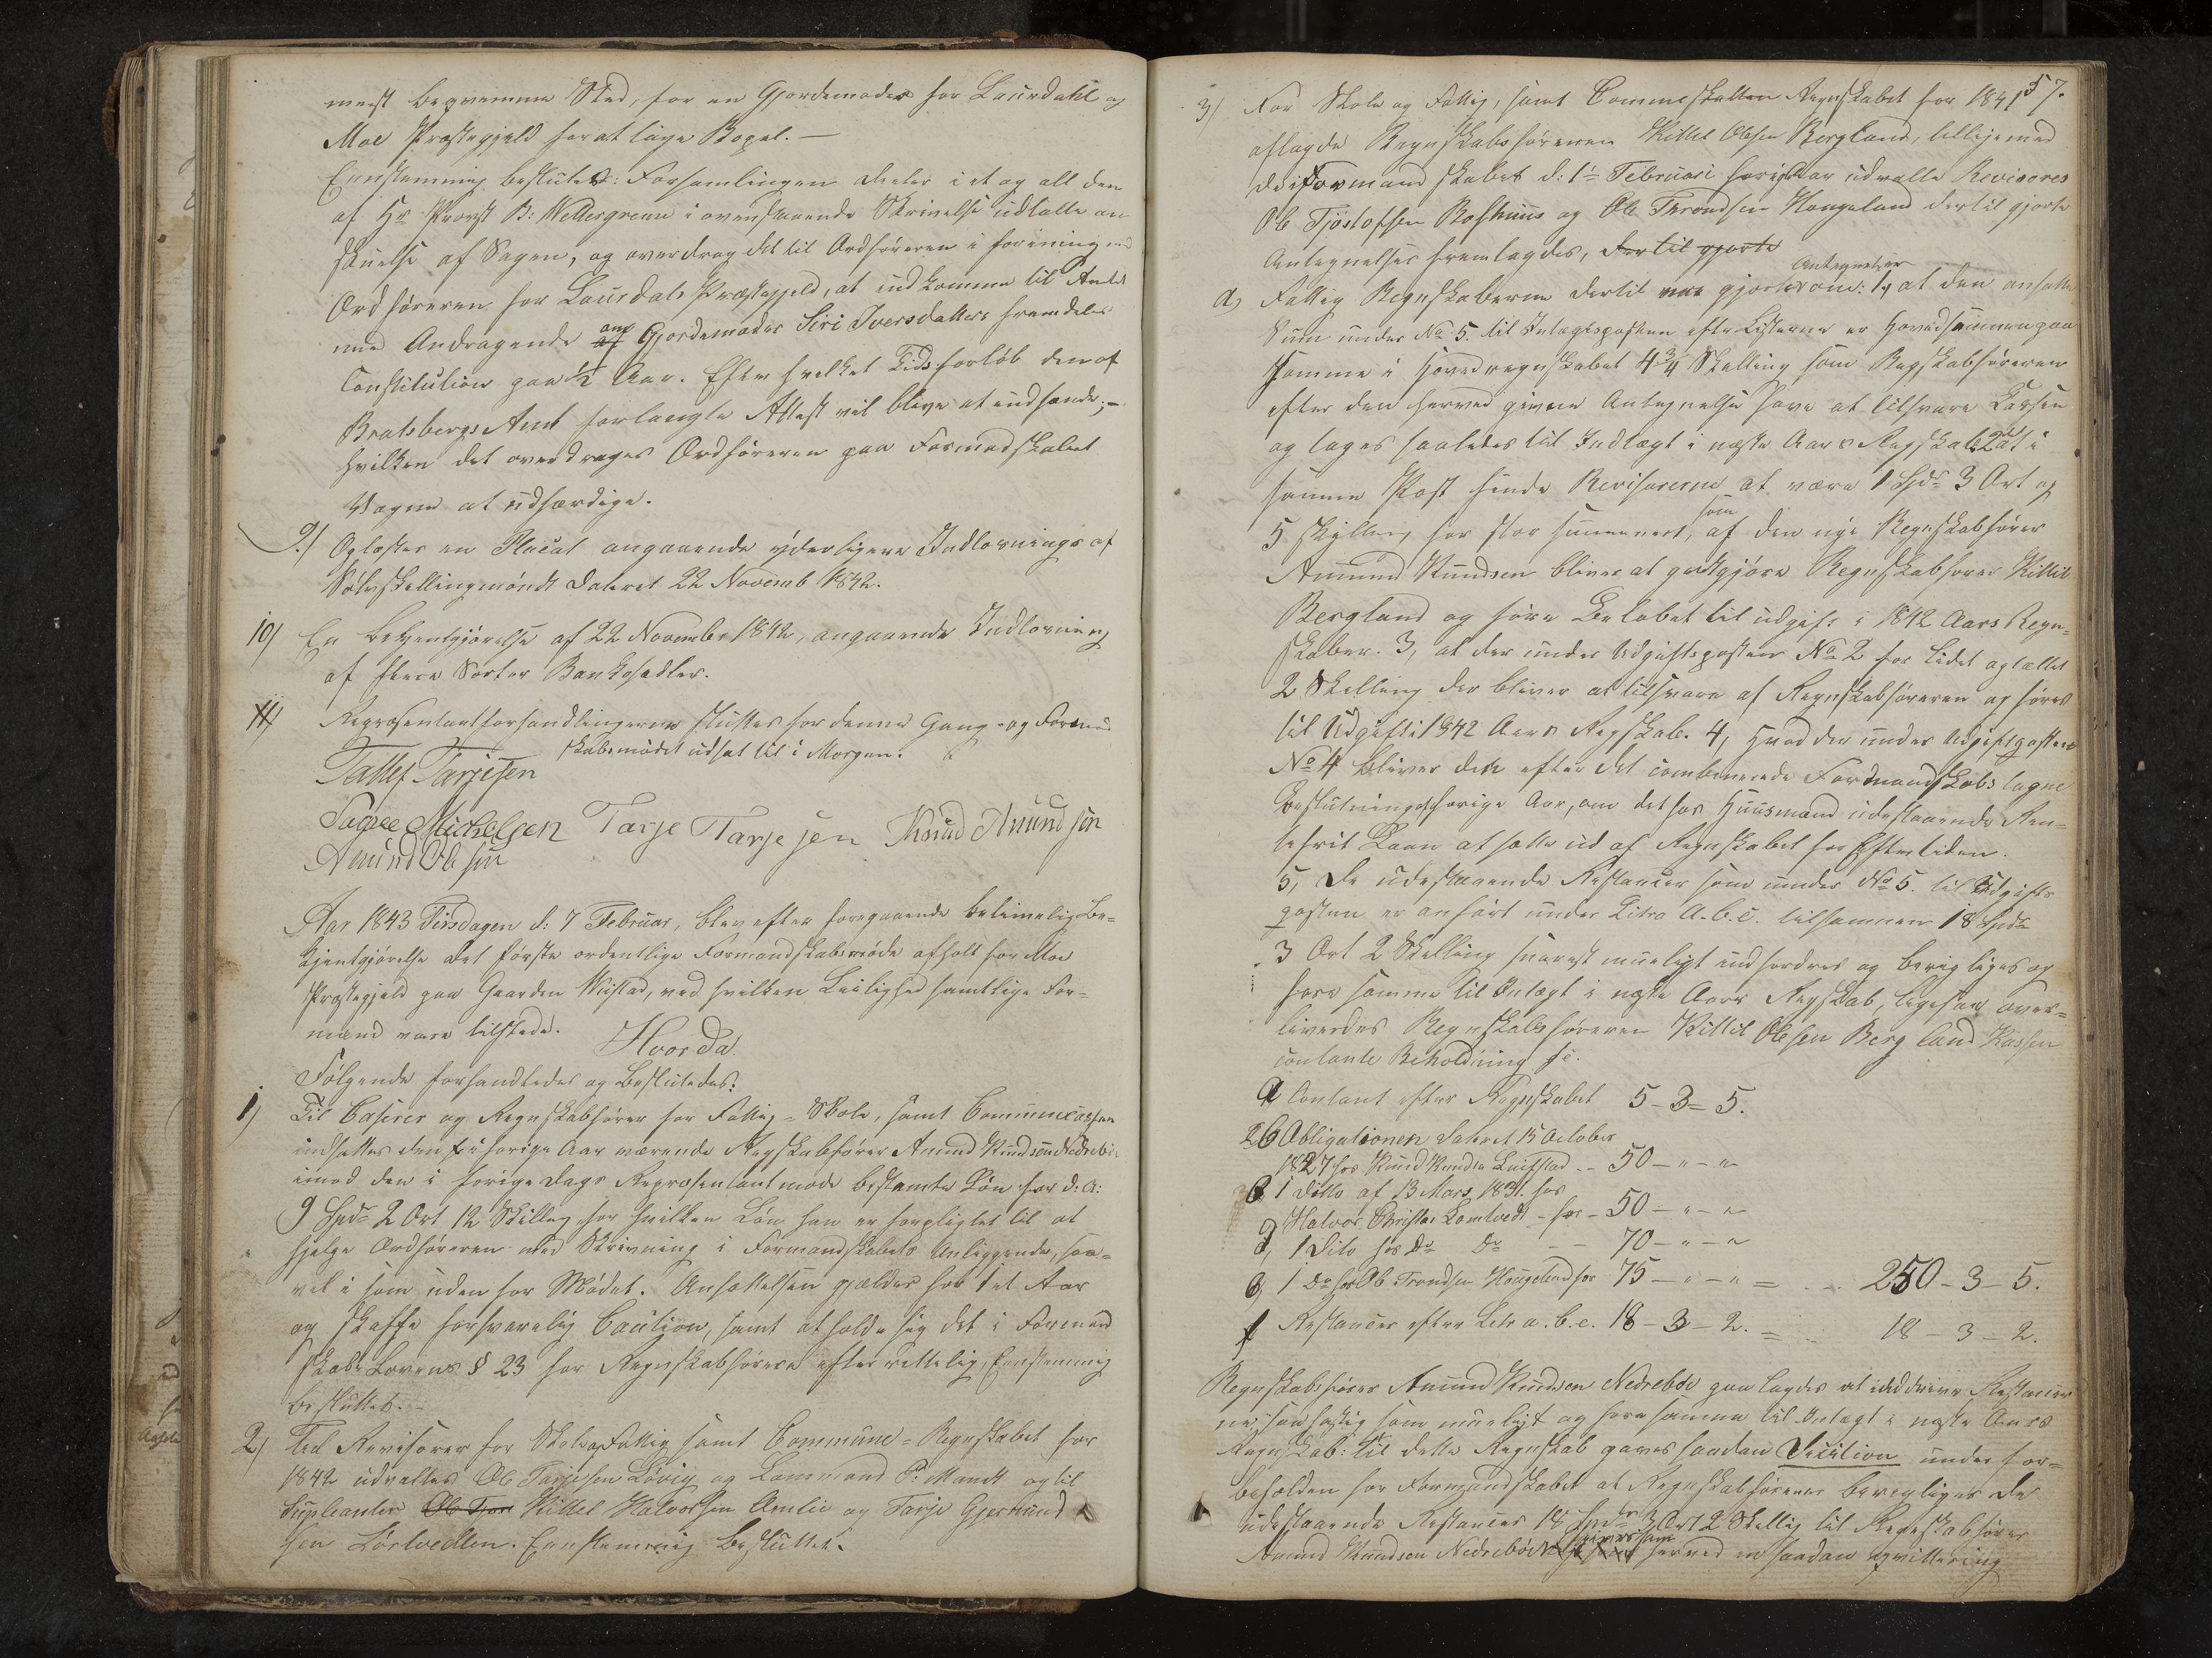 meest beqvemme Sted, for en Gjordemoder for Laurdahl og
Moe Præstegjeld for at tage Bopel. —
Eenstemmig besluttet: Forsamlingen deeler i et og alt den
af Hr Provst B: Wettergreen i ovenstaaende Skrivelse udtalte an
skuelse af Sagen, og overdrog det til Ordføreren i forening med
Ordføreren for Laurdals Præstegjeld, at indkomme til Amtet
med Andragende om Gjordemoder Siri Iversdatters fremdeles
Constitution paa ½ Aar. Efter hvilket Tidsforløb den af
Bratsbergs Amt forlangte Attest vil blive at indsende; —
hvilken det overdroges Ordføreren paa Formandskabets
Vegne at udfærdige.
9) Oplæstes en Placat angaaende yderligere Indløsning af
Sølvskillingmyndt dateret 22 Novemb 1842.
10) En bekjentgjørelse af 22 November 1842, angaaende Indløsning
af flere Sorter Bankosedler.
11) Repræsentantforhandlingerne sluttes for denne Gang - og Formand
skabsmødet udsat til i Morgen.
Tallef Tarjesen
Michelsen Tarje Tarjesen Knud Amundsen
Amund Olsen
Aar 1843 Tirsdagen d: 7 Februar, blev efter foregaaende betimelig Be-
kjentgjørelse det første ordentlige Formandskabsmøde afholt for Moe
Præstegjeld paa Gaarden, ved hvilken Leilighed samtlige For-
mænd vare tilstede. Hvorda
Følgende forhandledes og besluttedes:
1) Til Casserer og Regnskabsfører for Fattig- Skole, samt Communecassen
indsattes den i forige Aar værende Regnskabfører Amund Knudsen Nedrebø
imod den i forige Dags Repræsentantmøde bestemte Løn for d: A:
9 Spd 2 Ort 12 Skilling for hvilken Løn han er forpligtet til at
hjelpe Ordføreren med Skrivning i Formandskabets Anliggender, saa-
vel i som uden for Mødet. Ansættelsen gjelder for 1 et Aar
og skaffe forsvarlig Caution, samt at holde sig det i Formand
skabs Lovens § 23 for Regnskabsførere efterrettelig, Eenstemmig
besluttet. -
2) Til Revisorer for Skole og Fattig samt Commune- Regnskabet for
1842 udvaltes Ole Tarjesen Løvig og Lammand P: Mandt og til
Supleanter Ole Tjos Kittel Halvorsen Amlie og Tarje Gjermund
sen Lørtvedten. Eenstemmig besluttet.
57.
3) For Skole og Fattig, samt Commeskatten Regnskabet for 1841
aflagde Regnskabsføreren Kittil Olsen Bergland, tilligemed
de i Formandskabet d: 1 Februari forige Aar udvalte Revisorer
Ole Tjøstofsen Roshuus og Ole Throndsen Haugeland dertil gjorte
Antegnelser fremlagdes, dertil gjorte
Antegnelser
a) Fattig Regnskaberne dertil var gjorte om: 1, at den ansatte
Sum under No 5. til Indtægtsposten efter Listerne er Hovedsummen paa
samme i Hovedregnskabet 4 3/4 Skilling som Regskabsføreren
efter den herved givne Antegnelse have at tilsvare Cassen
og tages saaledes til Indtægt i neste Aars Regskab. 2, at i
samme Post finde Revisorerne at være 1 Spd 3 Ort og
som
5 Skilling for stor summeret, af den nye Regnskabsfører
Amund Knudsen bliver at godtgjøre Regnskabsfører Kittil
Bergland og føre Beløbet til udgift i 1842 Aars Regn-
skaber. 3, at der under Udgiftsposten No 2 for lidet optallet
2 Skilling der bliver at tilsvare af Regnskabsføreren og føres
til Udgift i 1842 Aars Regskab. 4, Hvad der under Udgiftsposten
No 4 bliver den efter det combinerede Formandskabs tagne
Beslutning forige Aar, om det hos Huusmænd udestaaende Ren-
tefrit Laan at sætte ud af Regnskabet for Eftertiden.
5, De udestaaende Restancer som under No 5. til Udgifts
posten er anført under Litra A. b. c. tilsammen 18 Spd
3 Ort 2 Skilling snarest mueligt indfordres og berigtiges og
føre samme til Indtægt i neste Aars Regskab, ligesom over-
leverdes Regnskabsføreren Kittil Olesen Bergland Kassen
contante Beholdning s:
a Contant efter Regnskabet 5 - 3 - 5.
2 b Obligationen dateret 15 October
1827 hos Knud Knudsen 50 - " - "
c 1 Ditto af 13 Mars 1831. hos
Halvor Christian Lomtvedt - for - 50 - " - "
d, 1 Dito hos Do Do - - 70 - " - "
e, 1 Do hos Ole Trondsen Haugeland for 75 - " - " = 250 - 3 - 5.
f Restancer efter Litr a. b. c. 18 - 3 - 2. = 18 - 3 - 2.
Regnskabsfører Amund Knudsen Nedrebøe paalagdes at inddrive Restancer
ne saa hastig som mueligt og føre samme til Indtægt i neste Aars
Regnskab: til dette Regnskab gaves saadan Decition under for-
beholden for Formandskabet at Regnskabsføreren berigtiger de
udestaaende Restancer 18 Spdr 3 Ort 2 Skilling til Regnskabsfører
Amund Knudsen Nedrebøe herved en saadan qvittering